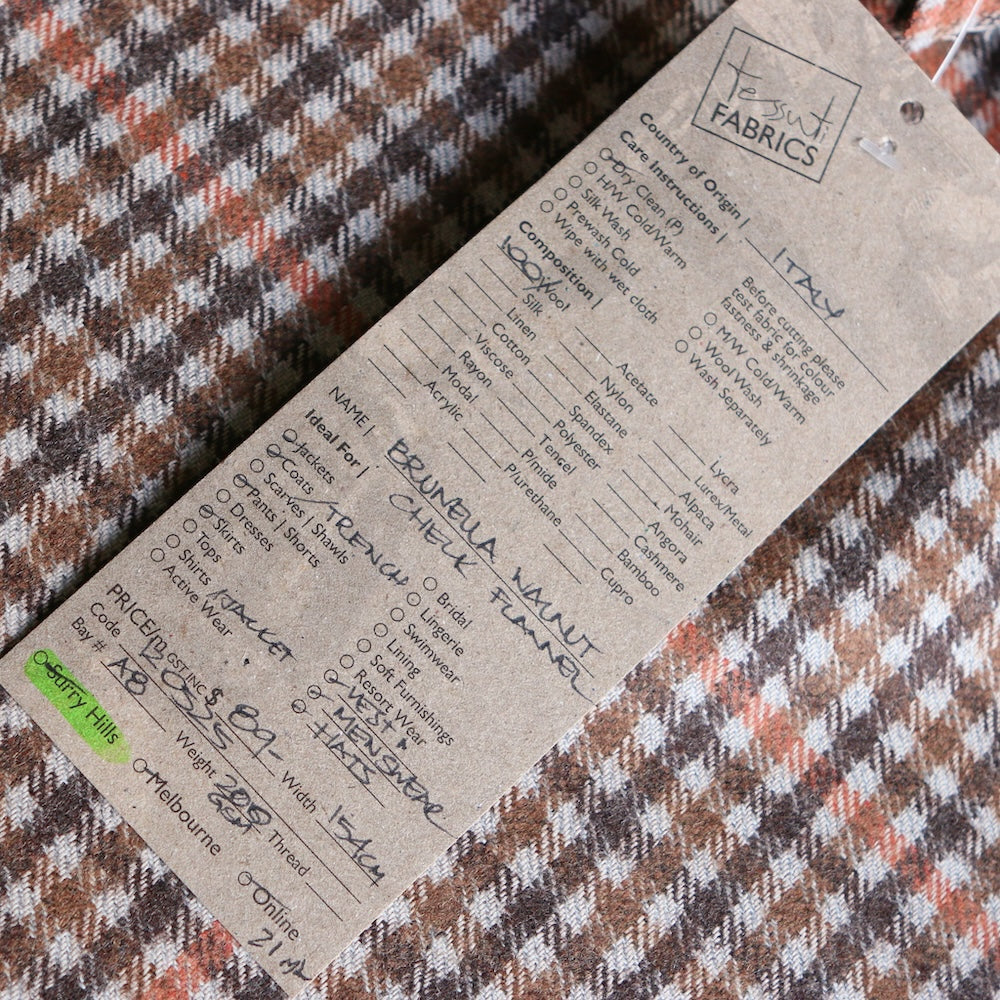 Tessuti
FABRICS
Country of Origin | ITALY
Care Instructions |
Dry Clean (P)
H/W Cold/Warm
Silk Wash
Prewash Cold
Wipe with wet cloth
Before cutting please
test fabric for colour
fastness & shrinkage
M/W Cold/Warm
Wool Wash
Wash Separately
Composition |
100% Wool
Silk
Linen
Cotton
Viscose
Rayon
Modal
Acrylic
Acetate
Nylon
Elastane
Spandex
Polyester
Tencel
P/mide
P/urethane
Lycra
Lurex/Metal
Alpaca
Mohair
Angora
Cashmere
Bamboo
Cupro
NAME | BRUNELLA WALNUT
CHECK FLANNEL
Ideal For |
Jackets
Coats / TRENCH
Scarves | Shawls
Pants | Shorts
Dresses
Skirts
Tops
Shirts /JACKET
Active Wear
Bridal
Lingerie
Swimwear
Lining
Soft Furnishings
Resort Wear
VEST
MENSWEAR
HATS
PRICE/m GST INC $ 89- Width 154cm
Code Weight Thread
Bay # A8
Surry Hills
Melbourne
Online